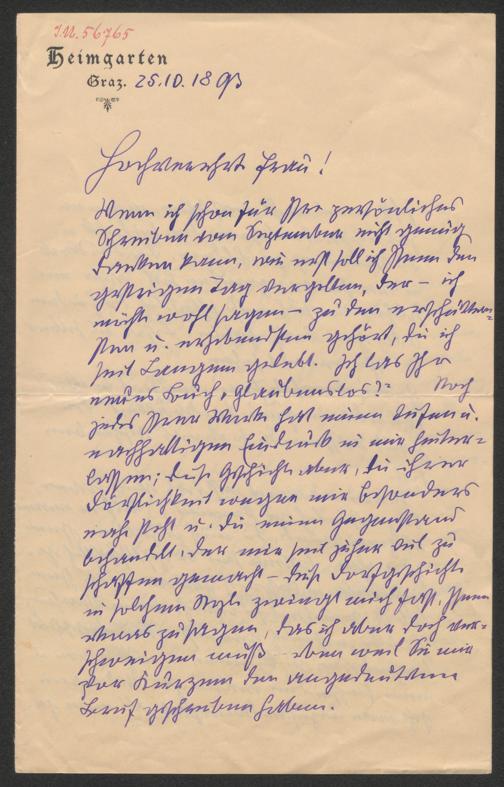 I.N. 56765
Heimgarten
Graz. 25.10.1893
Hochverehrte Frau!
Wenn ich schon für Ihr persönliches
Schreiben vom September nicht genug
danken kann, wie erst soll ich Ihnen den
gestrigen Tag vergelten, der – ich
möchte wohl sagen – zu den erschüttern-
sten u. erhebendsten gehört, die ich
seit Langem gelebt. Ich las Ihr
neues Buch „Glaubenslos?“ Noch
jedes Ihrer Werke hat einen tiefen u.
nachhaltigen Eindruck in mir hinter-
lassen; diese Geschichte aber, die ihrer
Dörflichkeit wegen mir besonders
nahe steht u. die einen Gegenstand
behandelt, der mir seit jeher viel zu
schaffen gemacht – diese Dorfgeschichte
in solchem Style zwingt mich fast, Ihnen
etwas zu sagen, das ich aber doch ver-
schweigen muß – eben weil Sie mir
vor Kurzem den angedeuteten
Brief geschrieben haben.